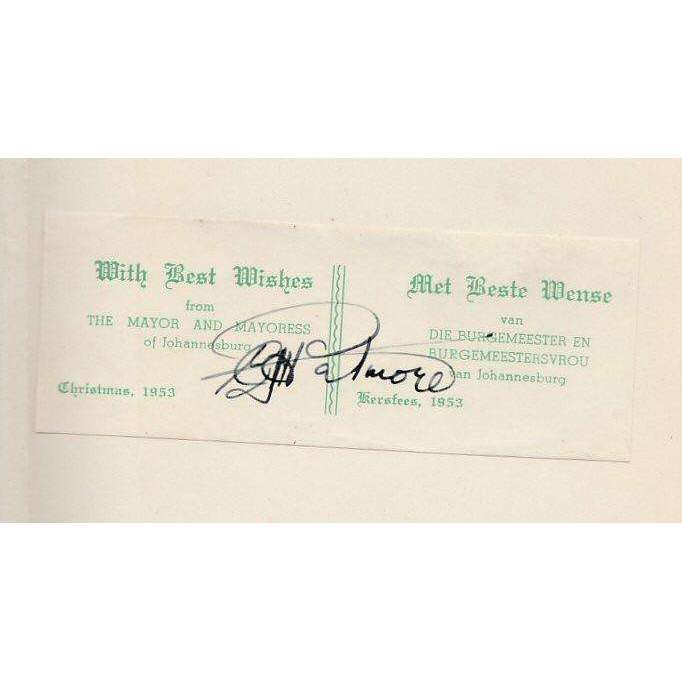 With Best Wishes
from
THE MAYOR AND MAYORESS
of Johannesburg
Christmas, 1953
Met Beste Wense
van
DIE BURGEMEESTER EN
BURGEMEESTERSVROU
van Johannesburg
Kersfees, 1953